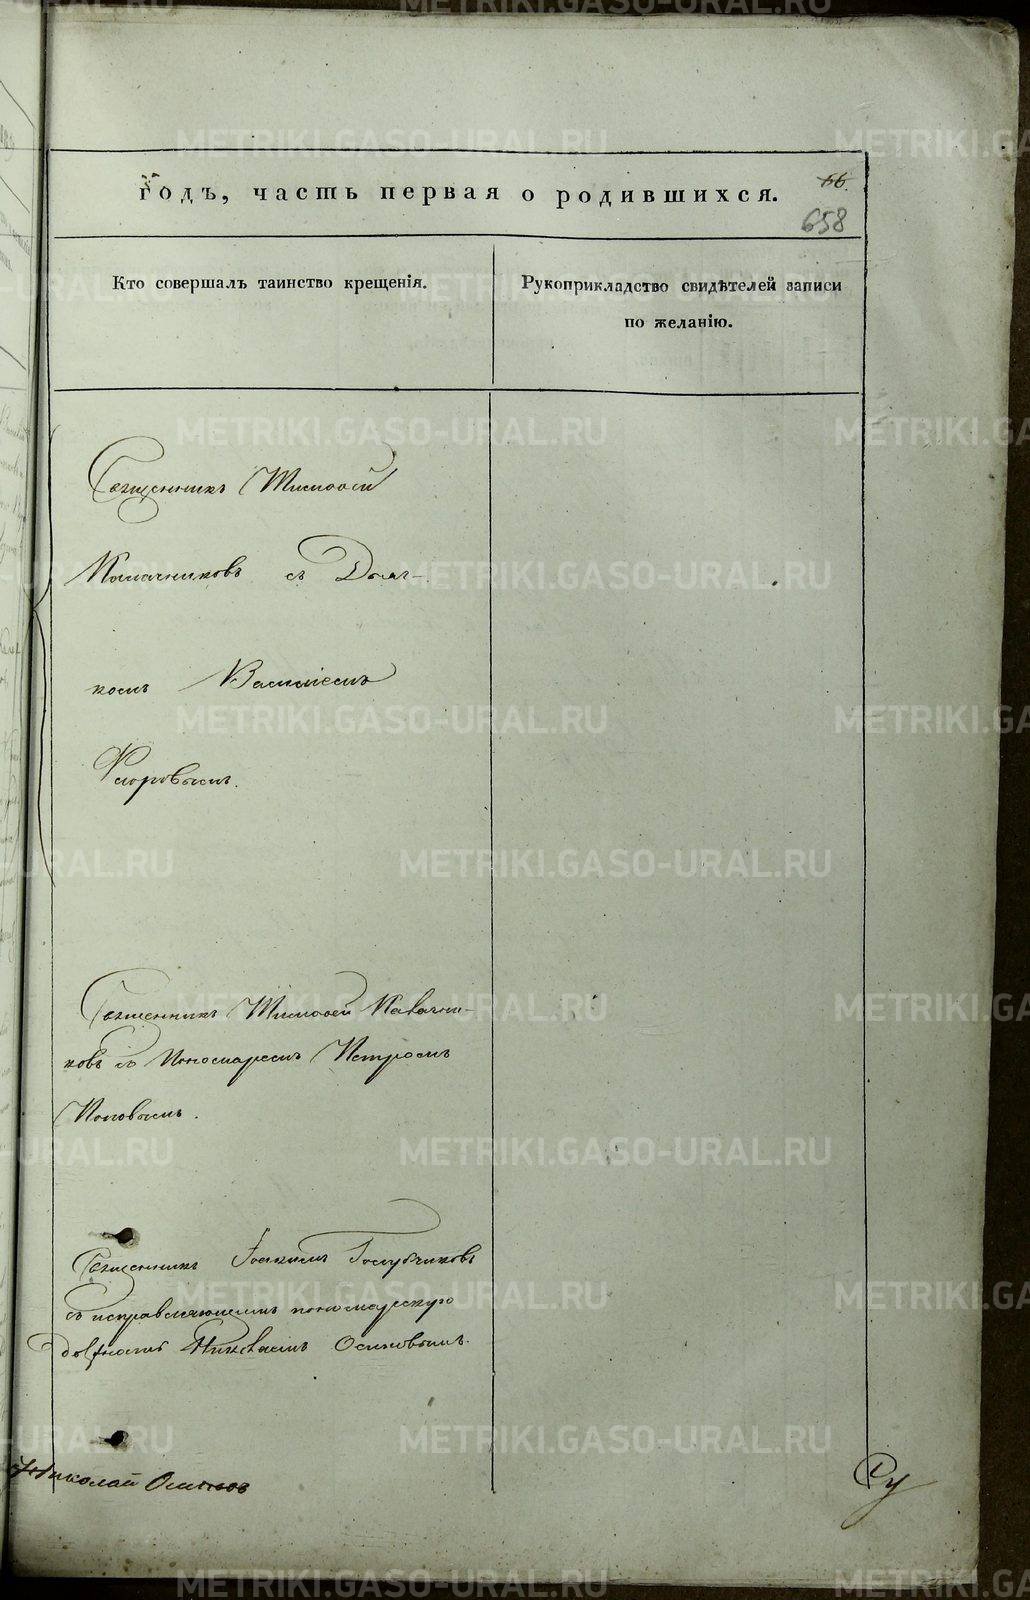 годъ, часть первая о родившихся.
66.
658
Кто совершалъ таинство крещенія.
Рукоприкладство свидѣтелей записи
по желанію.
Священникъ Тимофей
съ Діак-
комъ Василіемъ
Флоровымъ.
Священникъ Тимофей
ковъ съ Пономаремъ Петромъ
Поповымъ.
Священникъ Іоакимъ Голубчиковъ
съ исправляющемъ пономарскую
должность Николаемъ Осиповымъ.
Николай Осиповъ
Ру
METRIKI.GASO-URAL.RU